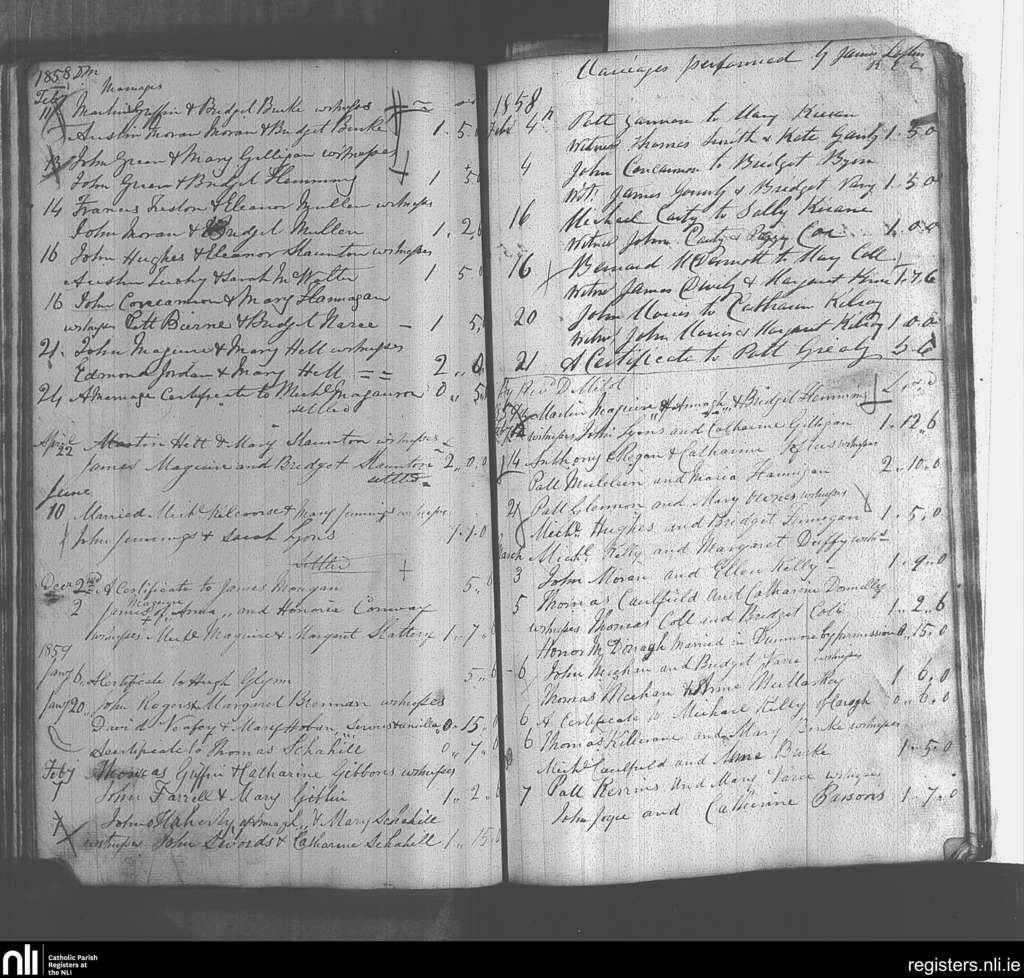 1858
Marriages
Feby
11 Martin Griffin & Bridget Burke witnesses
Austin Moran & Bridget Burke 1 . 5 . 0
13 John Green & Mary Gilligan witnesses
John Green & Bridget Flemming 1 5
14 Francis & Eleanor Mullen witnesses
John Moran & Bridget Mullen 1 . 2 . 6
16 John Hughes & Eleanor Staunton witnesses
Austin & Sarah McWalter 1 5
16 John Concannon & Mary Flannagan
witnesses Patt Beirne & Bridget Naree – 1 5
21 John Maguire & Mary Hett witnesses
Edmond Jordan & Mary Hett 2 .. 0
24 A Marriage Certificate to Michl Magauran 0 .. 5
settled
22 Martin Hett & Mary Staunton witnesses
James Maguire and Bredget Staunton 2 .. 0 .. 0
settled
June
10 Married Michl Kilcoorse & Mary Jennings witnesses
John Jennings & Sarah Lyons 1 . 1 . 0
settled
Decr 2nd A Certificate to James Mongan 5
2 James Maguire of Anna and Honoria Conway
witnesses Michl Maguire & Margaret Slattery 1 .. 7 .. 6
1859
Jany 6 A Certificate to Hugh Glynn 5 .. 0
Jany 20 John Rogers & Margaret Brennan witnesses
David & Mary Hoban 0 .. 15
A certificate to Thomas Schahill 0 .. 7
Feby Thomas Griffin & Catharine Gibbons witnesses
1 John Farrell & Mary Giblin 1 .. 2
7 John Flaherty & Mary Schahill
witnesses John Swords & Catharine Schahill 1 .. 15
Marriages performed by James
1858
Feb 4th Patt Gannon to Mary Kirwan
Witnes Thomas Smith & Kate Ganty 1 . 5 . 0
4 John Concannon to Bridget Byrn
Wit. James Younty & Bridget Vary 1 . 5 . 0
16 Michael Carty to Sally Kirane
Witnes John Carty & Peggy Cox 1 . 0 . 0
16 Bernard McDermott to Mary Coll
Witns James & Margaret 1 . 7 . 6
20 John Morris to Catharin Kilroy
Witns John Morris & Margaret Kilroy 1 0 0
21 A Certificate to Patt Grealy 5 . 0
By Revd D Mild £ s d
Martin Maguire & Bridget Flemming
witnesses John Lyons and Catharine Gilligan 1 . 12 .. 6
14 Anthony Megan & Catharine witnesses
Patt and Maria Flannigan 2 .. 10 .. 0
21 Patt Glennon and Mary witnesses
Michl Hughes and Bridget Finnegan 1 . 5 . 0
March Michl Kelly and Margaret Duffy
3 John Moran and Ellen Kelly 1 . 9 . 0
5 Thomas Caulfield and Catharine Donnelly
witnesses Thomas Coll and Bridget Coll 1 .. 2 .. 6
Honor McDonagh married in Dunmore by permission 0 . 15 . 0
6 John Meehan and Bridget Naree witnesses
Thomas Meehan & Anne Mullarkey 1 6 . 0
6 A Certificate to Michael Kelly of Cragh 0 .. 6 . 0
6 Thomas Killerane and Mary Burke witnesses
Michl Caulfield and Anne Burke 1 .. 5 . 0
7 Patt Kerrins and Mary Naree witnesses
John Joyce and Catherine Parsons 1 . 7 . 0
nli
Catholic Parish
Registers at
the NLI
registers.nli.ie